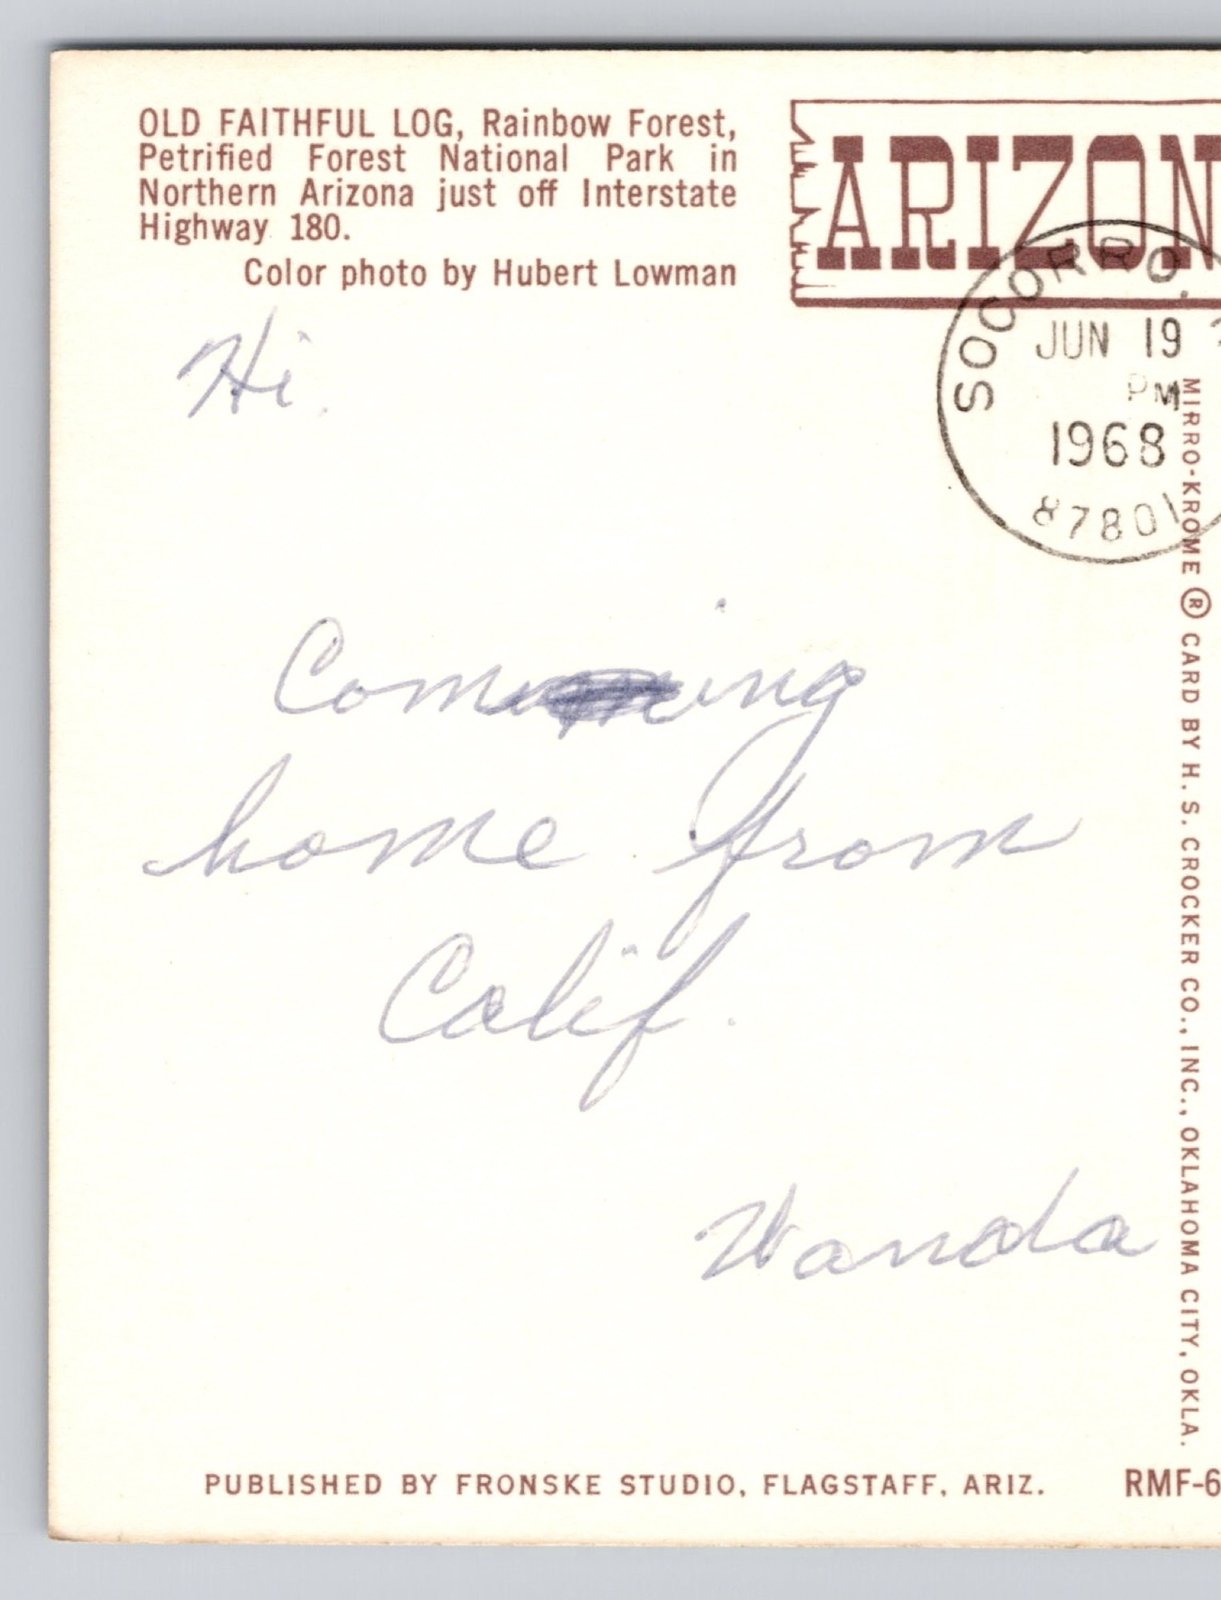 OLD FAITHFUL LOG, Rainbow Forest,
Petrified Forest National Park in
Northern Arizona just off Interstate
Highway 180.
Color photo by Hubert Lowman
ARIZON
SOCORRO,
JUN 19
PM
1968
87801
Hi.
Comming
home from
Calif.
Wanda
MIRRO-KROME ® CARD BY H. S. CROCKER CO., INC., OKLAHOMA CITY, OKLA.
PUBLISHED BY FRONSKE STUDIO, FLAGSTAFF, ARIZ.
RMF-6